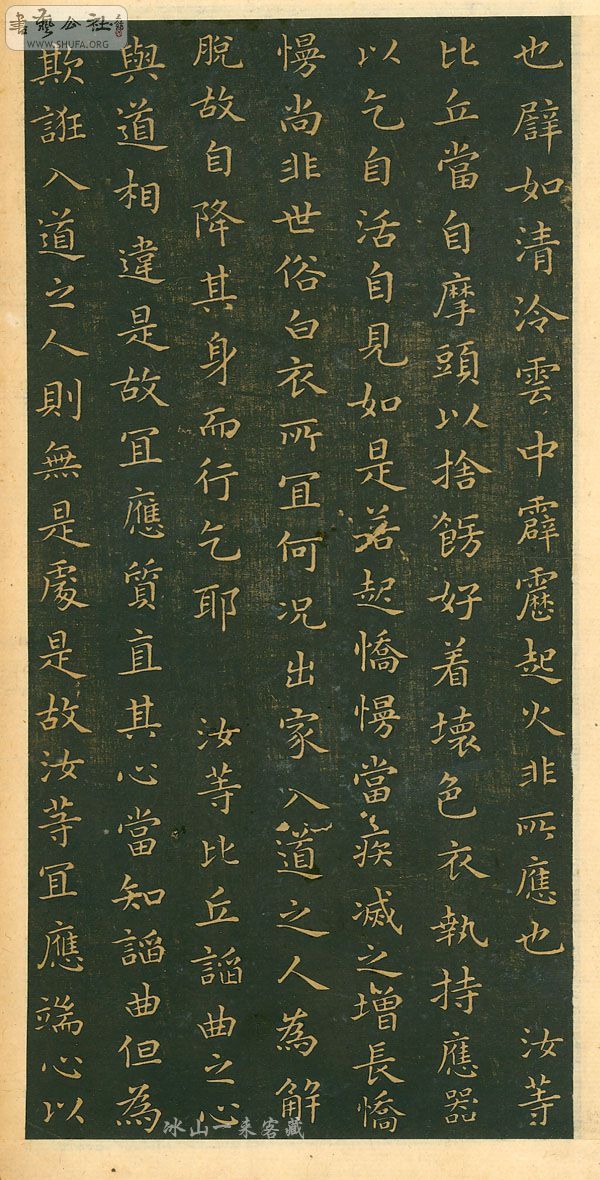 書藝公社
WWW.SHUFA.ORG
也辟如清泠雲中霹靂起火非所應也 汝等
比丘當自摩頭以捨餝好着壞色衣執持應器
以乞自活自見如是若起憍慢當疾滅之增長憍
慢尚非世俗白衣所冝何況出家入道之人為解
脫故自降其身而行乞耶 汝等比丘諂曲之心
與道相違是故冝應質直其心當知諂曲但為
欺誑入道之人則無是處是故汝等冝應端心以
冰山一來客藏